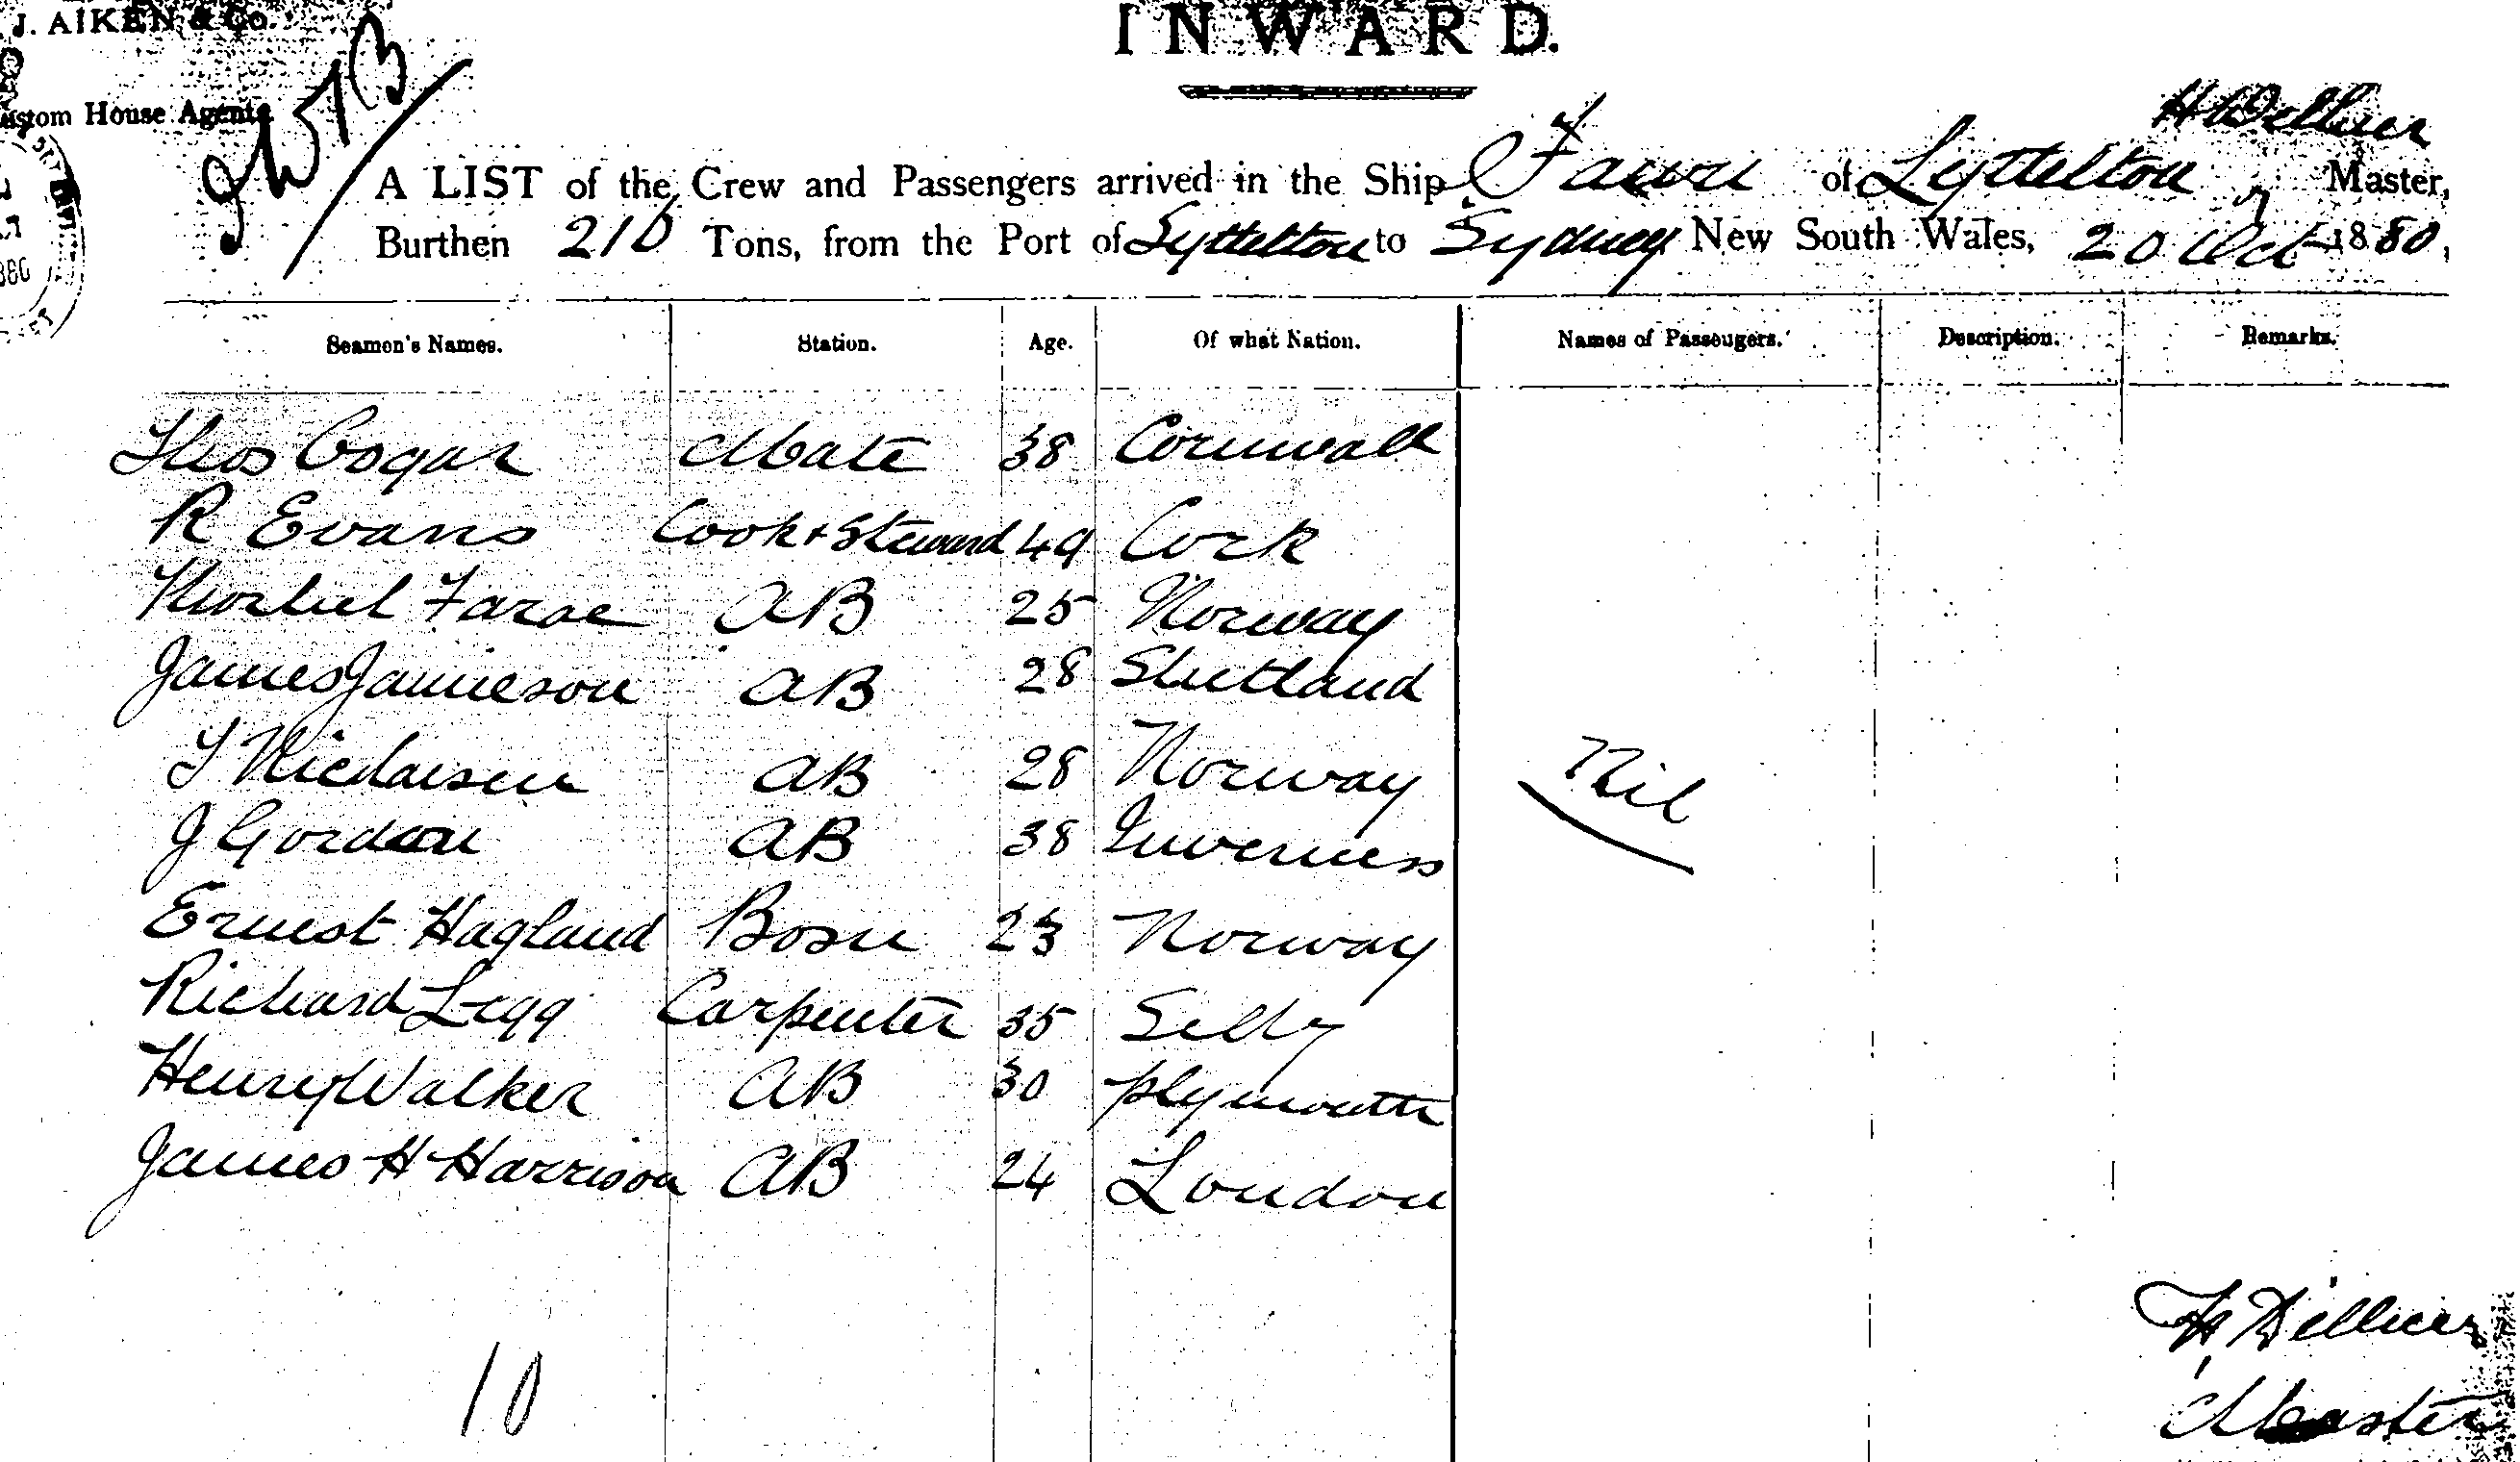 J. AIKEN & Co.
Custom House Agents.
INWARD.
A LIST of the Crew and Passengers arrived in the Ship Fawn of Lyttelton Master,
Burthen 210 Tons, from the Port of Lyttelton to Sydney New South Wales, 20 Oct 1880,
Seamen's Names. Station. Age. Of what Nation. Names of Passengers. Description. Remarks.
Thos Cogar Mate 38 Cornwall
R Evans Cook & Steward 49 Cork
AB 25 Norway
James Jamieson AB 28 Shetland
AB 28 Norway
J Gordon AB 38 Inverness
Nil
Ernest Hagland Bosn 23 Norway
Richard Legg Carpenter 35
Henry Walker AB 30 plymouth
James H Harrison AB 24 London
10
Master